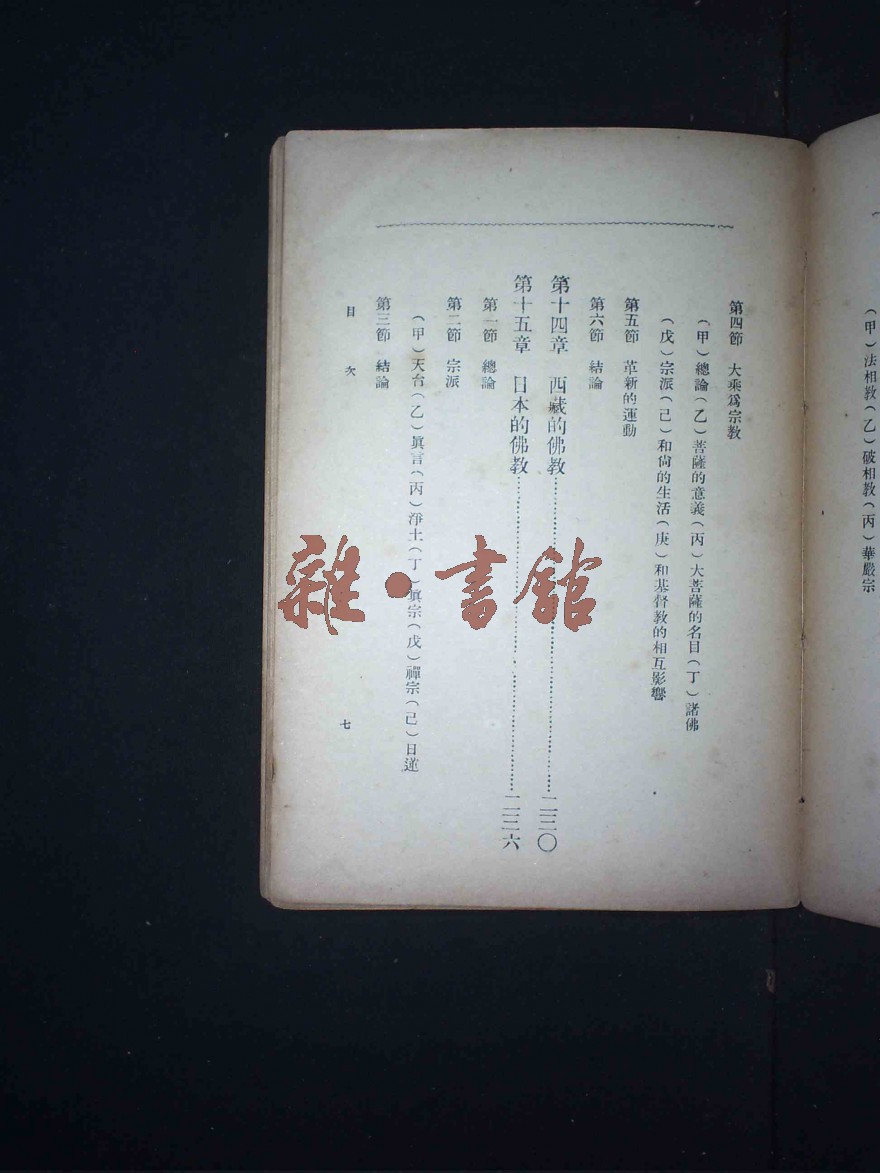 (甲)法相教(乙)破相教(丙)華嚴宗
第四節 大乘爲宗教
(甲)總論(乙)菩薩的意義(丙)大菩薩的名目(丁)諸佛
(戊)宗派(己)和尙的生活(庚)和基督教的相互影響
第五節 革新的運動
第六節 結論
第十四章 西藏的佛教……二三〇
第十五章 日本的佛教……二三六
第一節 總論
第二節 宗派
(甲)天台(乙)眞言(丙)淨土(丁)眞宗(戊)禪宗(己)日蓮
第三節 結論
目次 七
雜·書館